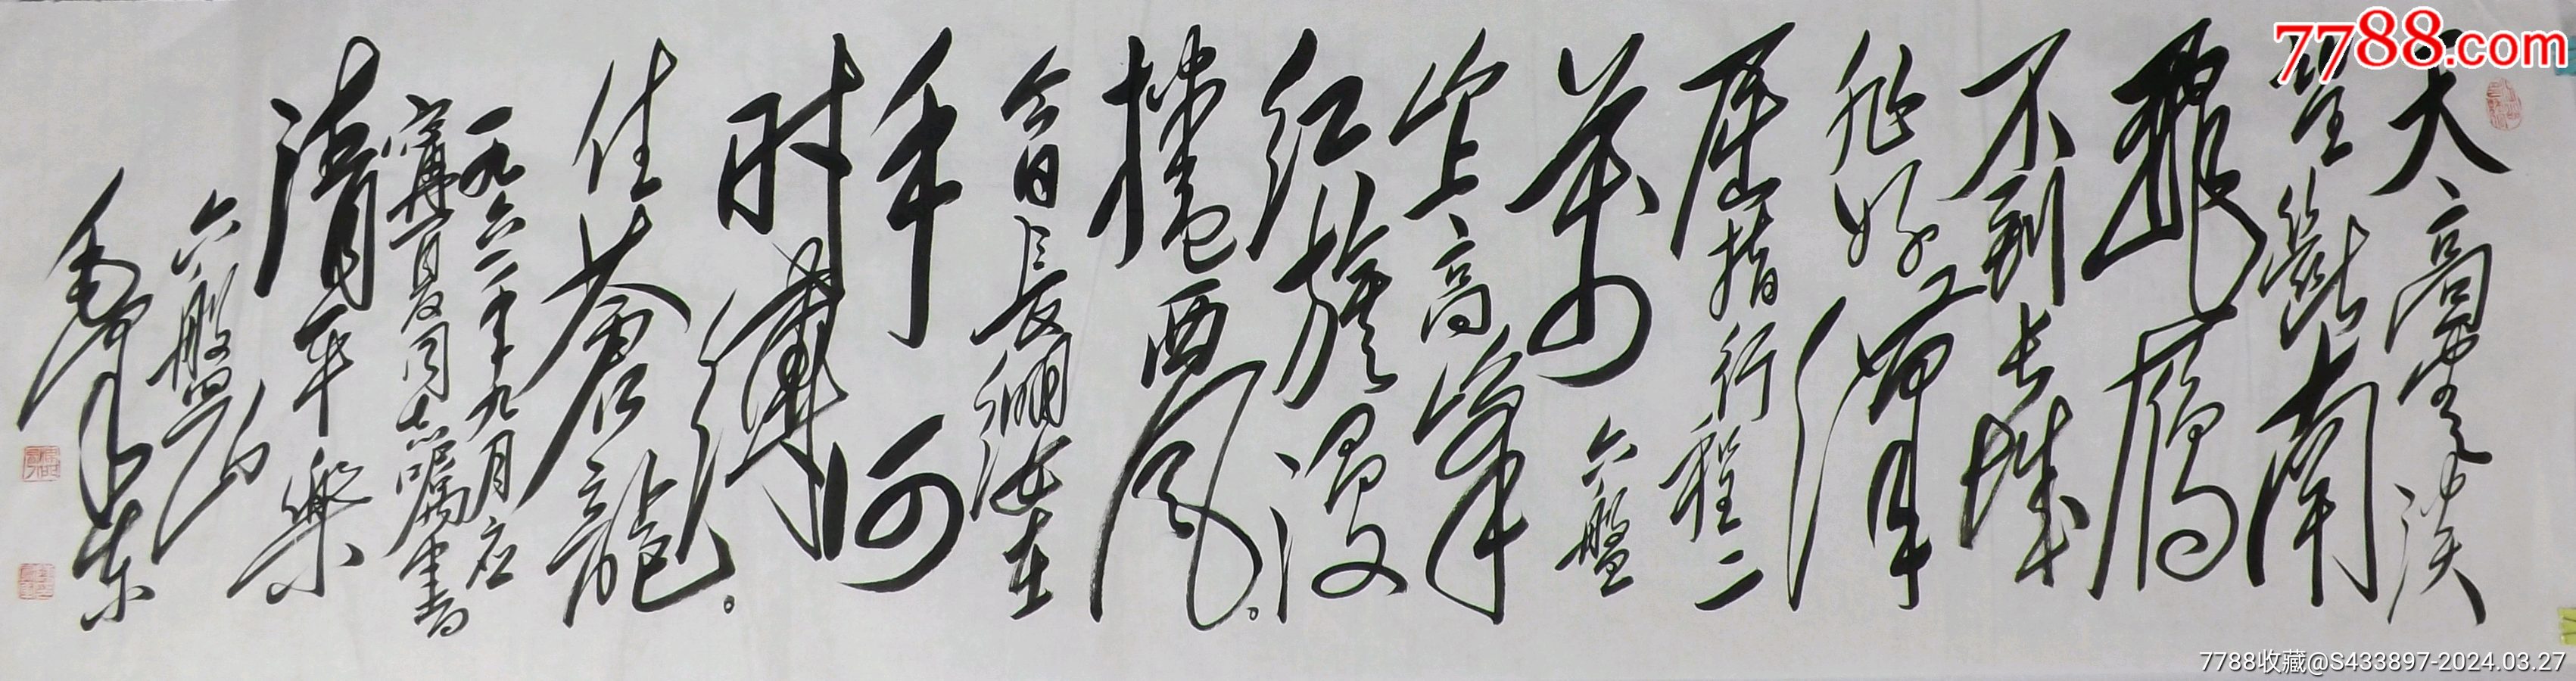 天高雲淡
望斷南
飛雁
不到长城
非好漢
屈指行程二
萬 六盤
山上高峰
红旗漫
捲西风。
今日长缨在
手 何
时縛
住蒼龍。
一九六一年九月应
寧夏同志嘱書
清平樂
六盤山
毛泽东
7788.com
7788收藏@S433897-2024.03.27